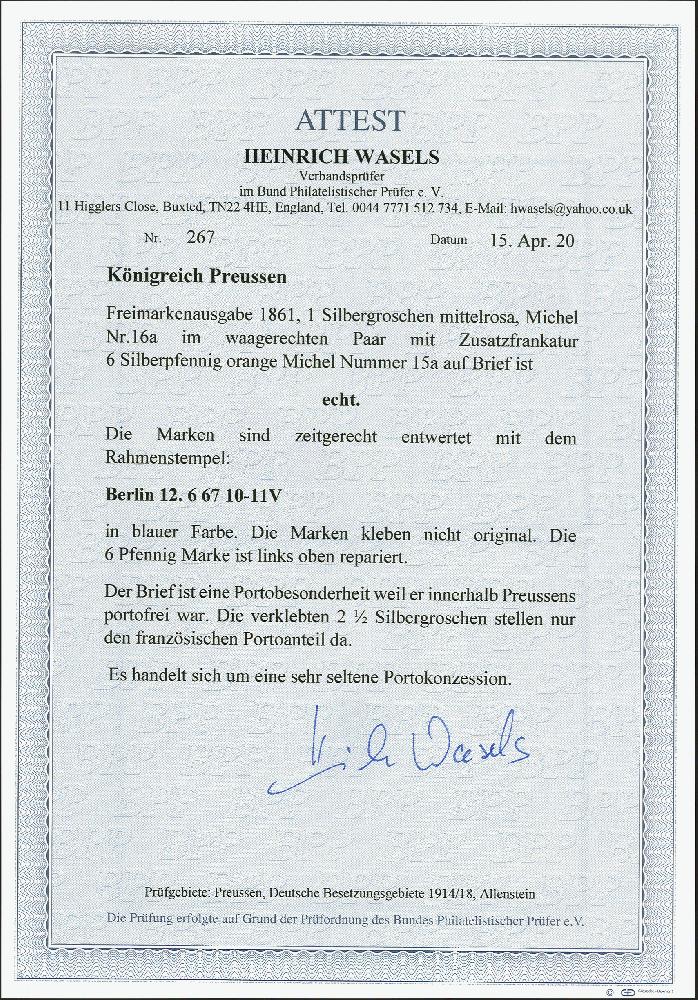 ATTEST
HEINRICH WASELS
Verbandsprüfer
im Bund Philatelistischer Prüfer e. V.
11 Higglers Close, Buxted, TN22 4HE, England, Tel. 0044 7771 512 734, E-Mail: hwasels@yahoo.co.uk
Nr. 267 Datum 15. Apr. 20
Königreich Preussen
Freimarkenausgabe 1861, 1 Silbergroschen mittelrosa, Michel
Nr.16a im waagerechten Paar mit Zusatzfrankatur
6 Silberpfennig orange Michel Nummer 15a auf Brief ist
echt.
Die Marken sind zeitgerecht entwertet mit dem
Rahmenstempel:
Berlin 12. 6 67 10-11V
in blauer Farbe. Die Marken kleben nicht original. Die
6 Pfennig Marke ist links oben repariert.
Der Brief ist eine Portobesonderheit weil er innerhalb Preussens
portofrei war. Die verklebten 2 ½ Silbergroschen stellen nur
den französischen Portoanteil da.
Es handelt sich um eine sehr seltene Portokonzession.
Wasels
Prüfgebiete: Preussen, Deutsche Besetzungsgebiete 1914/18, Allenstein
Die Prüfung erfolgte auf Grund der Prüfordnung des Bundes Philatelistischer Prüfer e.V.